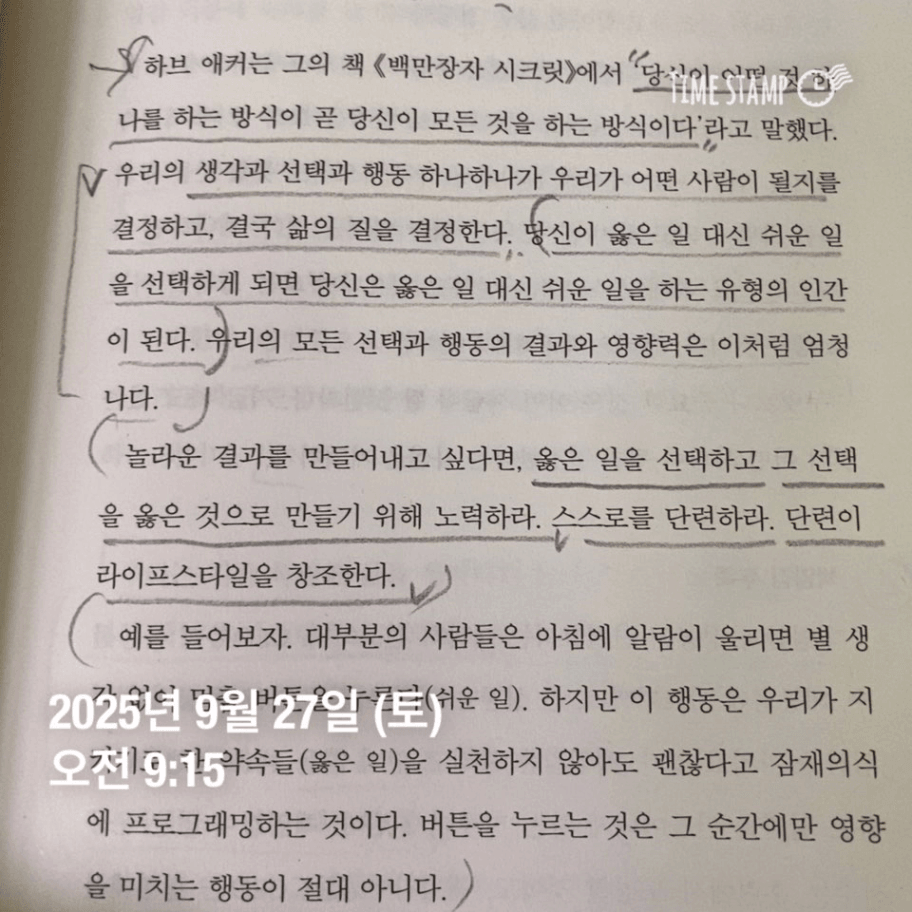 하브 애커는 그의 책 《백만장자 시크릿》에서 '당신이 어떤 것 하
TIME STAMP
나를 하는 방식이 곧 당신이 모든 것을 하는 방식이다'라고 말했다.
우리의 생각과 선택과 행동 하나하나가 우리가 어떤 사람이 될지를
결정하고, 결국 삶의 질을 결정한다. 당신이 옳은 일 대신 쉬운 일
을 선택하게 되면 당신은 옳은 일 대신 쉬운 일을 하는 유형의 인간
이 된다. 우리의 모든 선택과 행동의 결과와 영향력은 이처럼 엄청
나다.
놀라운 결과를 만들어내고 싶다면, 옳은 일을 선택하고 그 선택
을 옳은 것으로 만들기 위해 노력하라. 스스로를 단련하라. 단련이
라이프스타일을 창조한다.
예를 들어보자. 대부분의 사람들은 아침에 알람이 울리면 별 생
없이 버튼을 누른다(쉬운 일). 하지만 이 행동은 우리가 지
2025년 9월 27일 (토)
한 약속들(옳은 일)을 실천하지 않아도 괜찮다고 잠재의식
오전 9:15
에 프로그래밍하는 것이다. 버튼을 누르는 것은 그 순간에만 영향
을 미치는 행동이 절대 아니다.